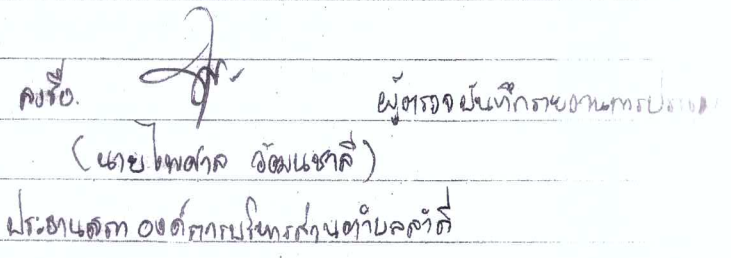 ลงชื่อ. ผู้ตรวจบันทึกรายงานการประชุม
(นายไพศาล
ประธานสภา องค์การบริหารส่วนตำบล